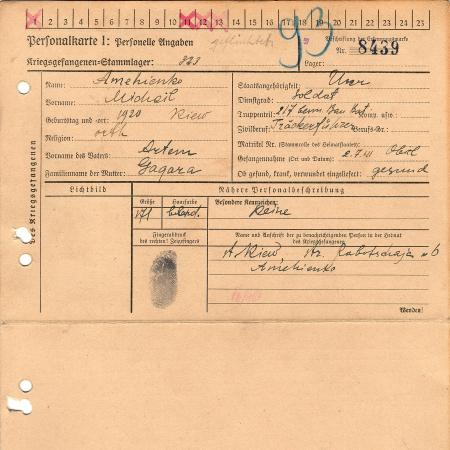 1 2 3 4 5 6 7 8 9 10 11 12 13 14 15 16 17 18 19 20 21 22 23 24 25
Personalkarte I: Personelle Angaben
Kriegsgefangenen-Stammlager: 323
93
Beschriftung der Erkennungsmarke
Nr. 8439
Lager:
Des Kriegsgefangenen
Name: Amehienko
Vorname: Michail
Geburtstag und -ort: 1920 Kiew
Religion: orth
Vorname des Vaters: Artem
Familienname der Mutter: Gagara
Staatsangehörigkeit:
Dienstgrad: Soldat
Truppenteil: 217 Bau Bat. Komp. usw.:
Zivilberuf: Berufs-Gr.:
Matrikel Nr. (Stammrolle des Heimatstaates):
Gefangennahme (Ort und Datum): 2.7.41
Ob gesund, krank, verwundet eingeliefert: gesund
Lichtbild
Nähere Personalbeschreibung
Größe
171
Haarfarbe
blond.
Besondere Kennzeichen:
Keine
Fingerabdruck
des rechten! Zeigefingers
Name und Anschrift der zu benachrichtigenden Person in der Heimat
des Kriegsgefangenen
Kiew, Rabotschaja 6
Amehienko
Wenden!